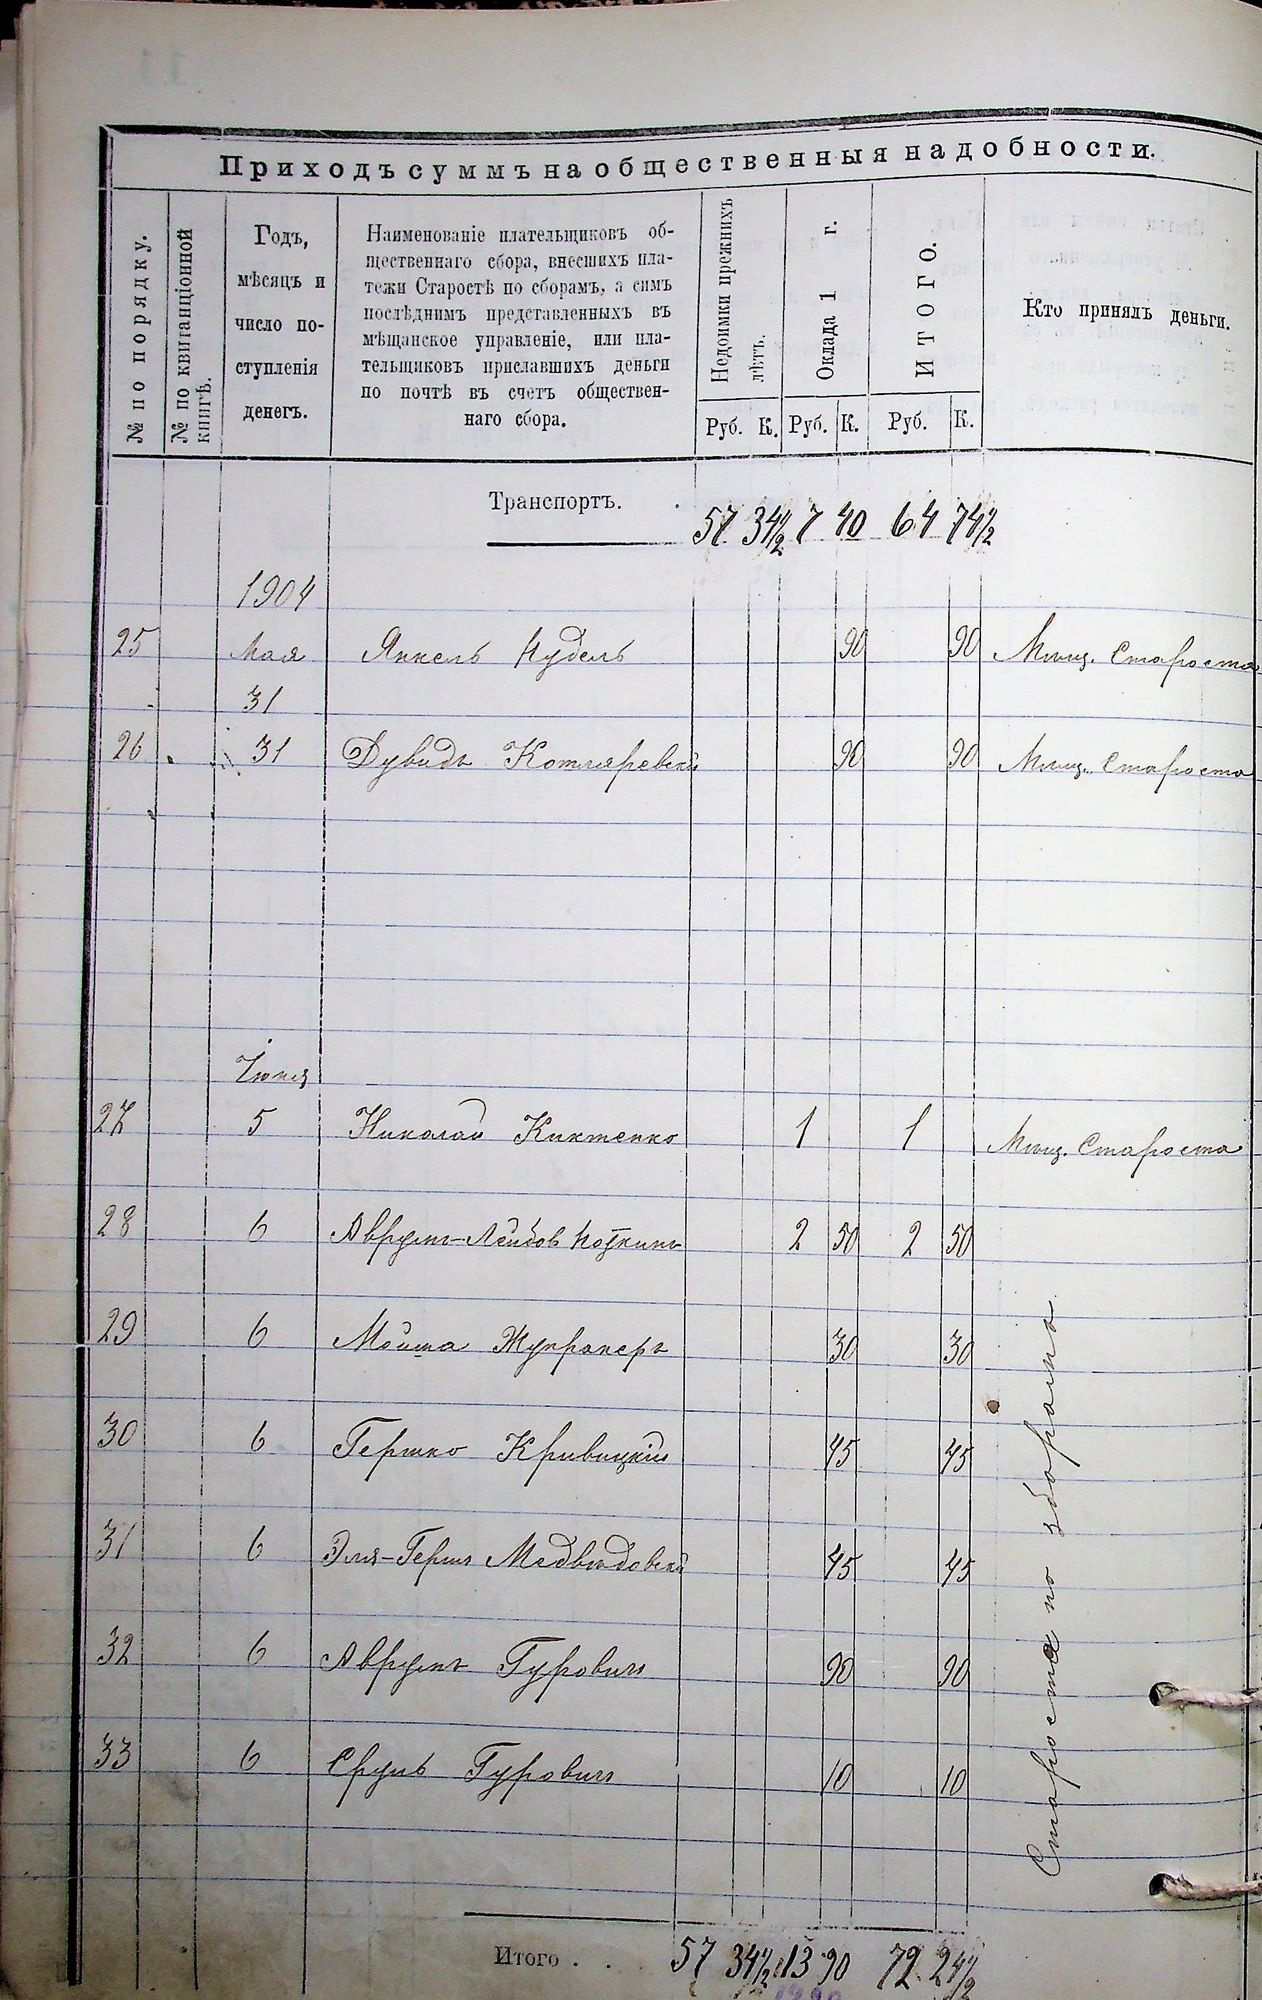 Приходъ суммъ на общественныя надобности.
№ по порядку.
№ по квитанціонной
книгѣ.
Годъ,
мѣсяцъ и
число по-
ступленія
денегъ.
Наименованіе плательщиковъ об-
щественнаго сбора, внесшихъ пла-
тежи Старостѣ по сборамъ, а симъ
послѣднимъ представленныхъ въ
мѣщанское управленіе, или пла-
тельщиковъ приславшихъ деньги
по почтѣ въ счетъ обществен-
наго сбора.
Недоимки прежнихъ
лѣтъ.
Оклада 1 г.
ИТОГО.
Кто принялъ деньги.
Руб. К. Руб. К. Руб. К.
Транспортъ. 57 34½ 7 40 64 74½
1904
25 Мая Янкель Нудель 90 90 Мѣщ. Староста
31
26 31 Дувидъ Котляревскій 90 90 Мѣщ. Староста
Іюня
27 5 Николай Киктенко 1 1 Мѣщ. Староста
28 6 Аврумъ-Лейбов 2 50 2 50
29 6 Мойша 30 30
30 6 Гершко Кривицкій 45 45
31 6 Эля-Герш Медвѣдовскій 45 45
32 6 Аврумъ Гурович 90 90
33 6 Сруль Гурович 10 10
Староста по зборамъ
Итого . . 57 34½ 13 90 72 24½